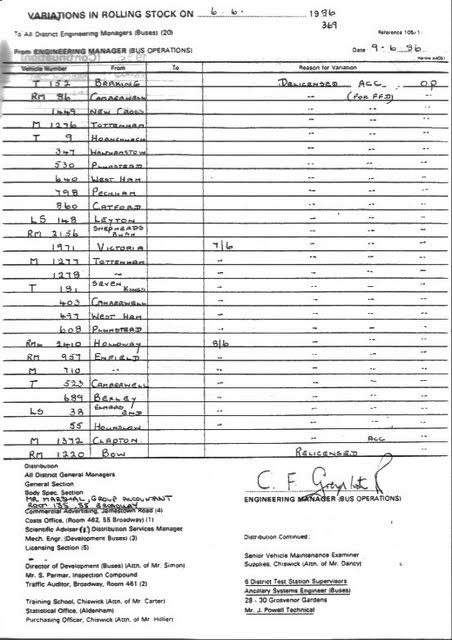 VARIATIONS IN ROLLING STOCK ON 6.6. 1986
369
To All District Engineering Managers (Buses) (20)
Reference 105/1
From ENGINEERING MANAGER (BUS OPERATIONS) Date 9-6-86
Vehicle Number From To Reason for Variation
T 152 BARKING DELICENSED ACC OP
RM 86 CAMBERWELL -- (FOR F.F.D) --
1449 NEW CROSS -- -- --
M 1276 TOTTENHAM -- -- --
T 9 HORNCHURCH -- -- --
347 WALTHAMSTOW -- -- --
530 PLUMSTEAD -- -- --
640 WEST HAM -- -- --
798 PECKHAM -- -- --
860 CATFORD -- -- --
LS 148 LEYTON -- -- --
RM 2156 SHEPHERDS BUSH -- -- --
1971 VICTORIA 7/6 -- -- --
M 1277 TOTTENHAM -- -- -- --
1278 -- -- -- -- --
T 181 SEVEN KINGS -- -- -- --
403 CAMBERWELL -- -- -- --
497 WEST HAM -- -- -- --
608 PLUMSTEAD -- -- -- --
RML 2410 HOLLOWAY 8/6 -- -- --
RM 957 ENFIELD -- -- -- --
M 710 -- -- -- -- --
T 523 CAMBERWELL -- -- -- --
689 BEXLEY -- -- -- --
LS 38 EDMONTON -- -- -- --
55 HOUNSLOW -- -- -- --
M 1372 CLAPTON -- -- ACC --
RM 1220 BOW RELICENSED
Distribution
All District General Managers
General Section
Body Spec. Section
MR MARSHAL, GROUP ACCOUNTANT
ROOM 135, 55 BROADWAY
Commercial Advertising, Jamestown Road (4)
Costs Office, (Room 462, 55 Broadway) (1)
Scientific Adviser Distribution Services Manager
Mech. Engr. (Development Buses) (3)
Licensing Section (5)
Director of Development (Buses) (Attn. of Mr. Simon)
Mr. S. Parmar, Inspection Compound
Traffic Auditor, Broadway, Room 461 (2)
Training School, Chiswick (Attn. of Mr Carter)
Statistical Office, (Aldenham)
Purchasing Officer, Chiswick (Attn. of Mr Hillier)
C. F.
ENGINEERING MANAGER (BUS OPERATIONS)
Distribution Continued:
Senior Vehicle Maintenance Examiner
Supplies, Chiswick (Attn. of Mr. Dancy)
6 District Test Station Supervisors
Ancillary Systems Engineer (Buses)
28 - 30 Grosvenor Gardens
Mr. J. Powell Technical